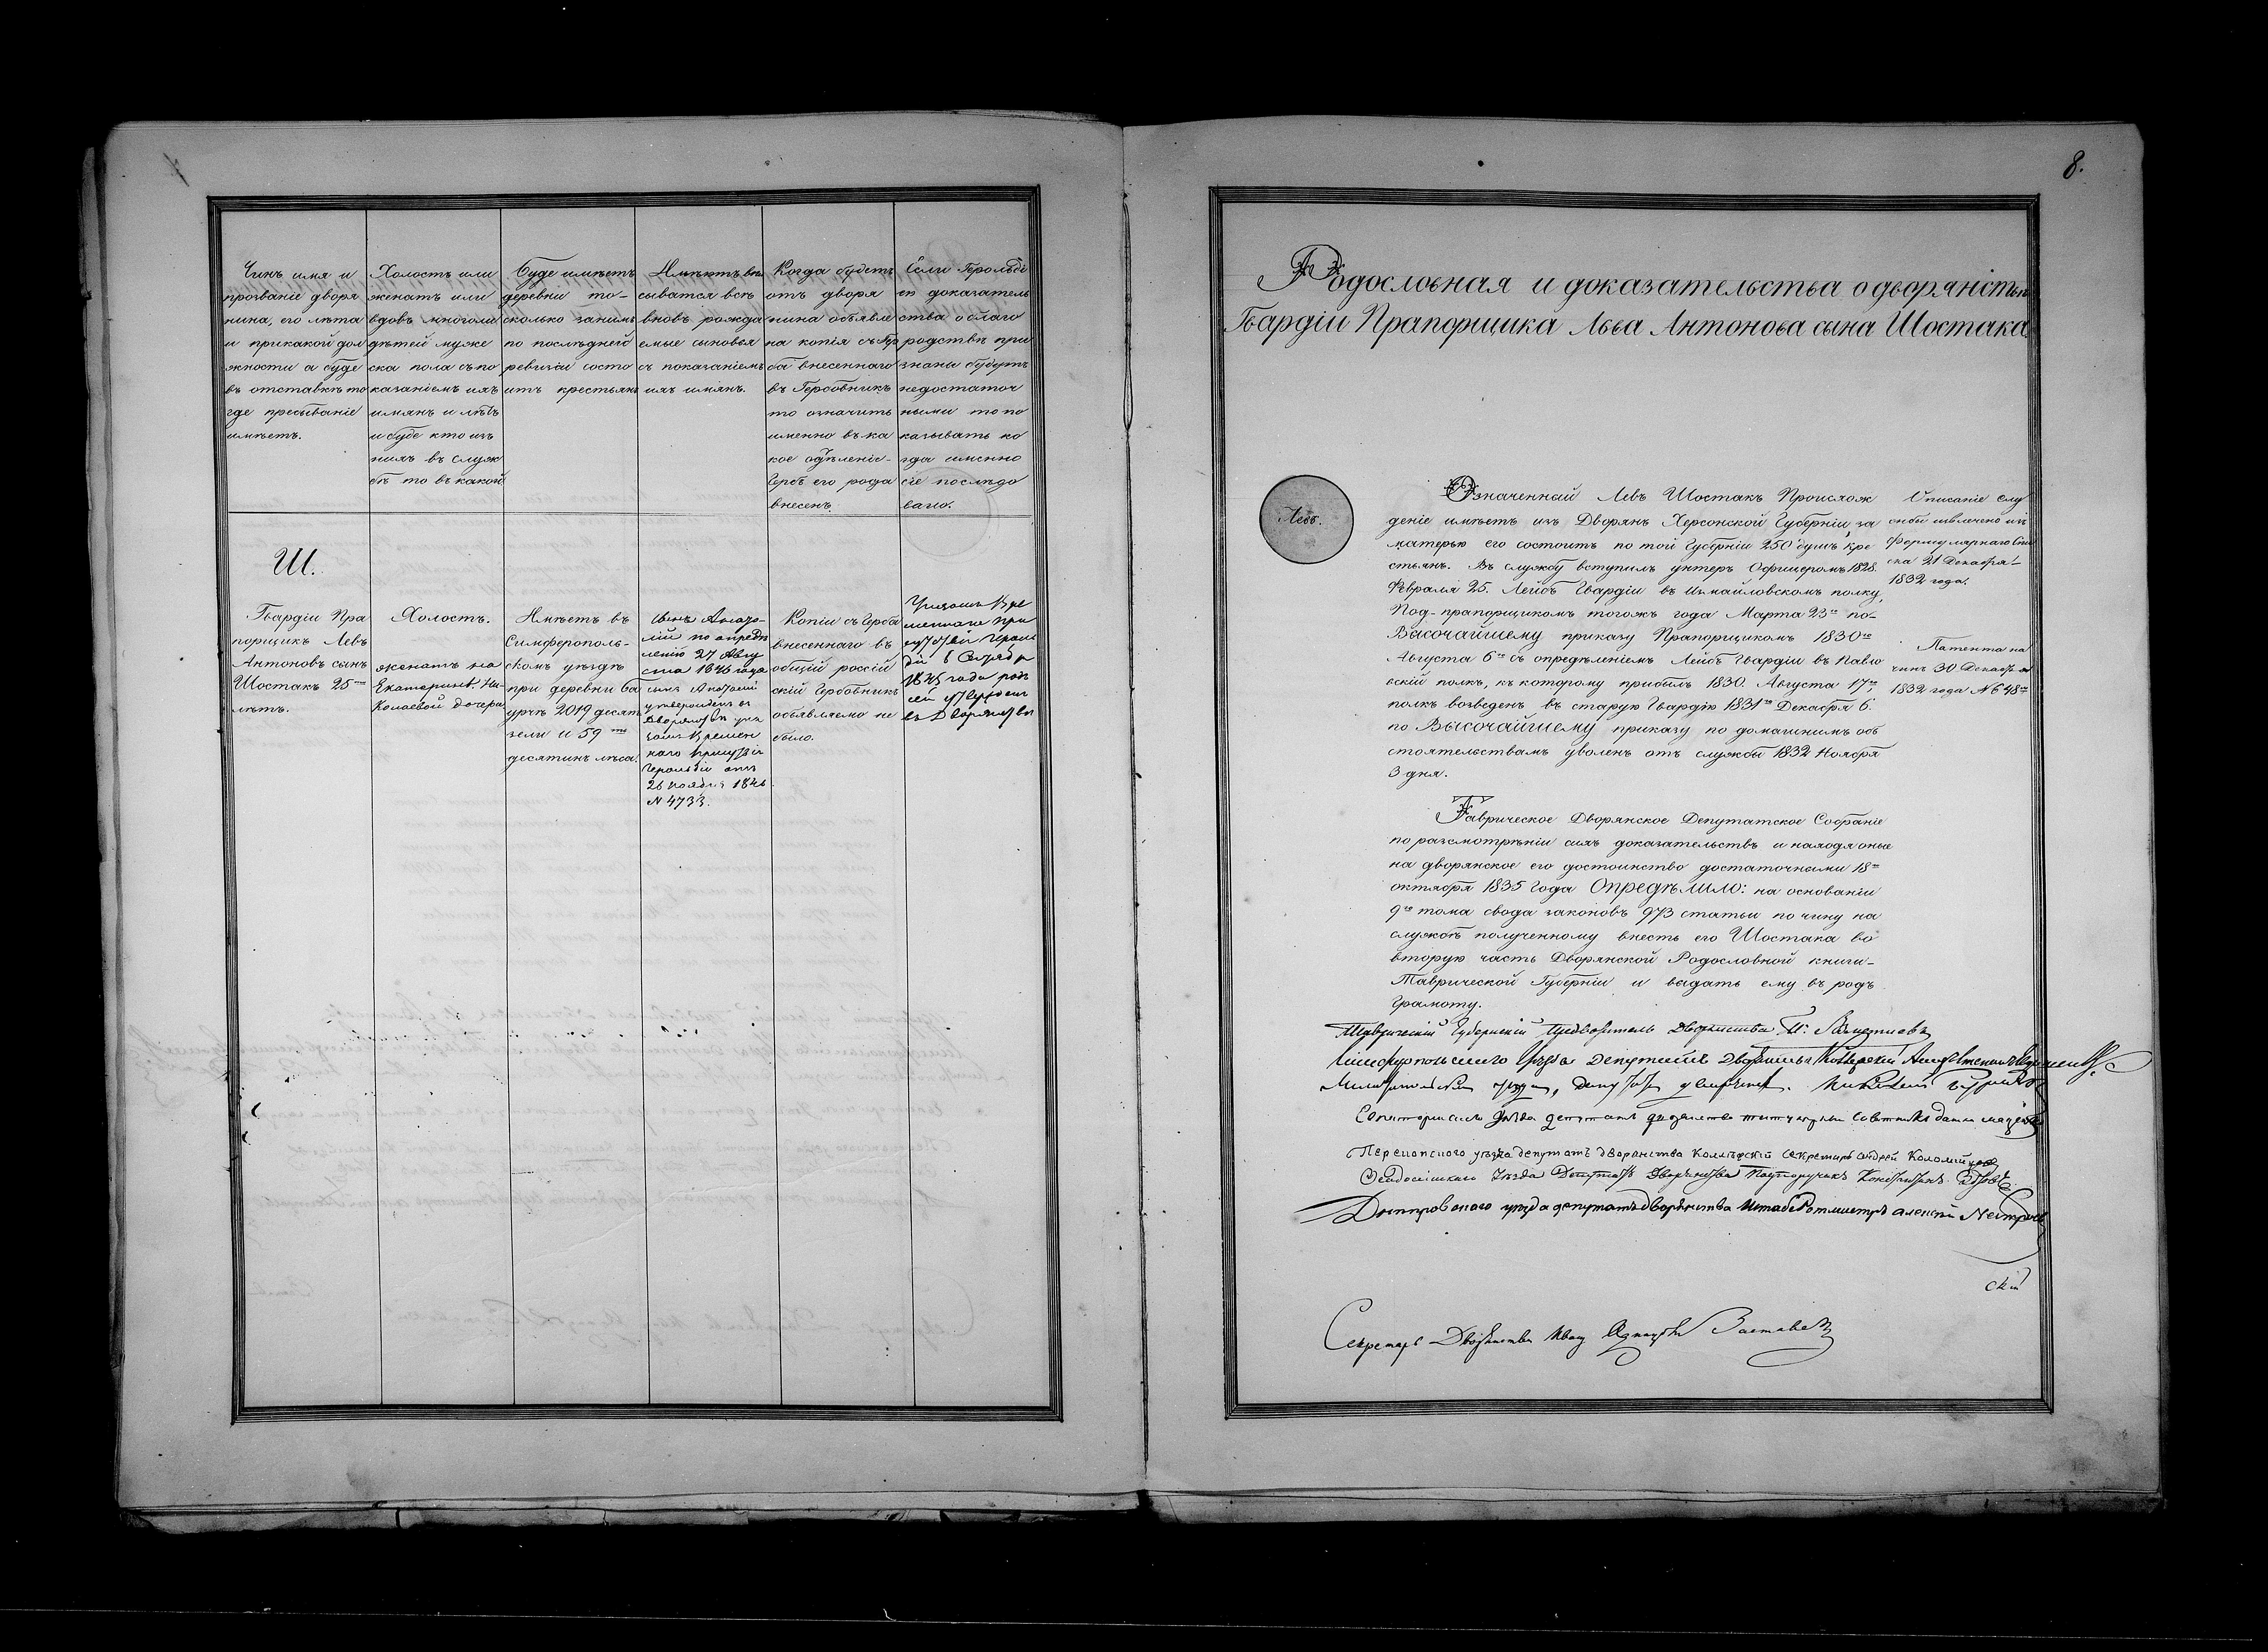 Чинъ имя и
прозваніе дворя
нина, его лѣта
и прикакой дол
жности а буде
въ отставкѣ то
где пребываніе
имѣетъ.
Холостъ или
женатъ или
вдовъ многоли
дѣтей муже
ска пола съпо
казаніемъ ихъ
имянъ и лѣтъ
и буде кто изъ
нихъ въ служ
бѣ то въ какой
Буде имѣетъ
деревни то-
сколько занимъ
по послѣдней
ревизіи состо
итъ крестьянъ
Имѣютъ впи
сыватся всѣ
вновь рожда
емые сыновья
съ показаніемъ
ихъ имянъ.
Когда будетъ
отъ дворя
нина объявле
на копія съ Гер
ба внесеннаго
въ Гербовникъ
то означить
именно въ ка
кое отдѣленіе-
Гербъ его рода
внесенъ.
Если Герольді
ею доказатель
ства о благо
родствѣ при
знаны будутъ
недостаточ
ными то по
казывать ко
гда именно
сіе послѣдо
вало.
Ш.
Гвардіи Пра
порщикъ Левъ
Антоновъ сынъ
Шостакъ 25
лѣтъ.
Холостъ.
женатъ на
Екатеринѣ Ни-
колаевой дочери
Имѣетъ въ
Симферополь-
скомъ уѣздѣ
при деревни Ба
урчѣ 2019 десят
земли и 59
десятинъ лѣса.
Сынъ Анато-
лій по опредѣ
ленію 27 Авгу
ста 1846 года
сынъ Анатолій
утвержденъ въ
Дворянствѣ ука
зомъ Времен
наго Присутствія
Герольдіи отъ
26 ноября 1846
N 4733.
Копіи съ Герба
внесеннаго въ
общій россій
скій Гербовникъ
объявляемо не
было.
Указомъ Вре
меннаго При
сутствія Героль
діи 6 Сентября
1845 года родъ
сей утвержденъ
въ Дворянствѣ
8.
Родословная и доказательства о дворянствѣ
Гвардіи Прапорщика Льва Антонова сына Шостака
Левъ.
Означенный Левъ Шостакъ Происхож
деніе имѣетъ изъ Дворянъ Херсонской Губерніи, за
матерью его состоитъ по той Губерніи 250 душъ кре
стьянъ. Въ службу вступилъ унтеръ Офицеромъ 1828.
Февраля 25. Лейбъ Гвардіи въ Измайловскомъ полку,
Под-прапорщикомъ тогожъ года Марта 23го по-
Высочайшему приказу Прапорщикомъ 1830го
Августа 6го съ опредѣленіемъ Лейбъ Гвардіи въ Павло
вскій полкъ, къ которому прибылъ 1830. Августа 17го,
полкъ возведенъ въ старую Гвардію 1831го Декабря 6.
по Высочайшему приказу по домашнимъ об
стоятельствамъ уволенъ отъ службы 1832 Ноября
3 дня.
Описаніе слу
жбы извлечено изъ
Формулярнаго Спи
ска 21 Декабря
1832 года.
Патента на
чинъ 30 Декабря
1832 года N 648
Таврическое Дворянское Депутатское Собраніе
по разсмотрѣніи сихъ доказательствъ и находя оные
на дворянское его достоинство достаточными 18
октября 1835 года Опредѣлило: на основаніи
9го тома свода законовъ 973 статьи по чину на
службѣ полученному внесть его Шостака во
вторую часть Дворянской Родословной книги-
Таврической Губерніи и выдать ему въ родъ
грамоту.
Таврическій Губернскій Предводитель Дворянства
Симферопольского Уѣзда Депутатъ Дворянства
Мелитопольскій уѣзда, Депутатъ
уѣзда депутатъ дворянства титулярный совѣтникъ
Перекопского уѣзда депутатъ дворянства Коллежскій секретарь Андрей Коломійцовъ
Феодосійскаго Уѣзда Депутатъ Дворянства Подпоручикъ
Днепровскаго уѣзда депутатъ дворянства Штабс Ротмистръ алексѣй Нестров
скій
Секретарь Дворянства